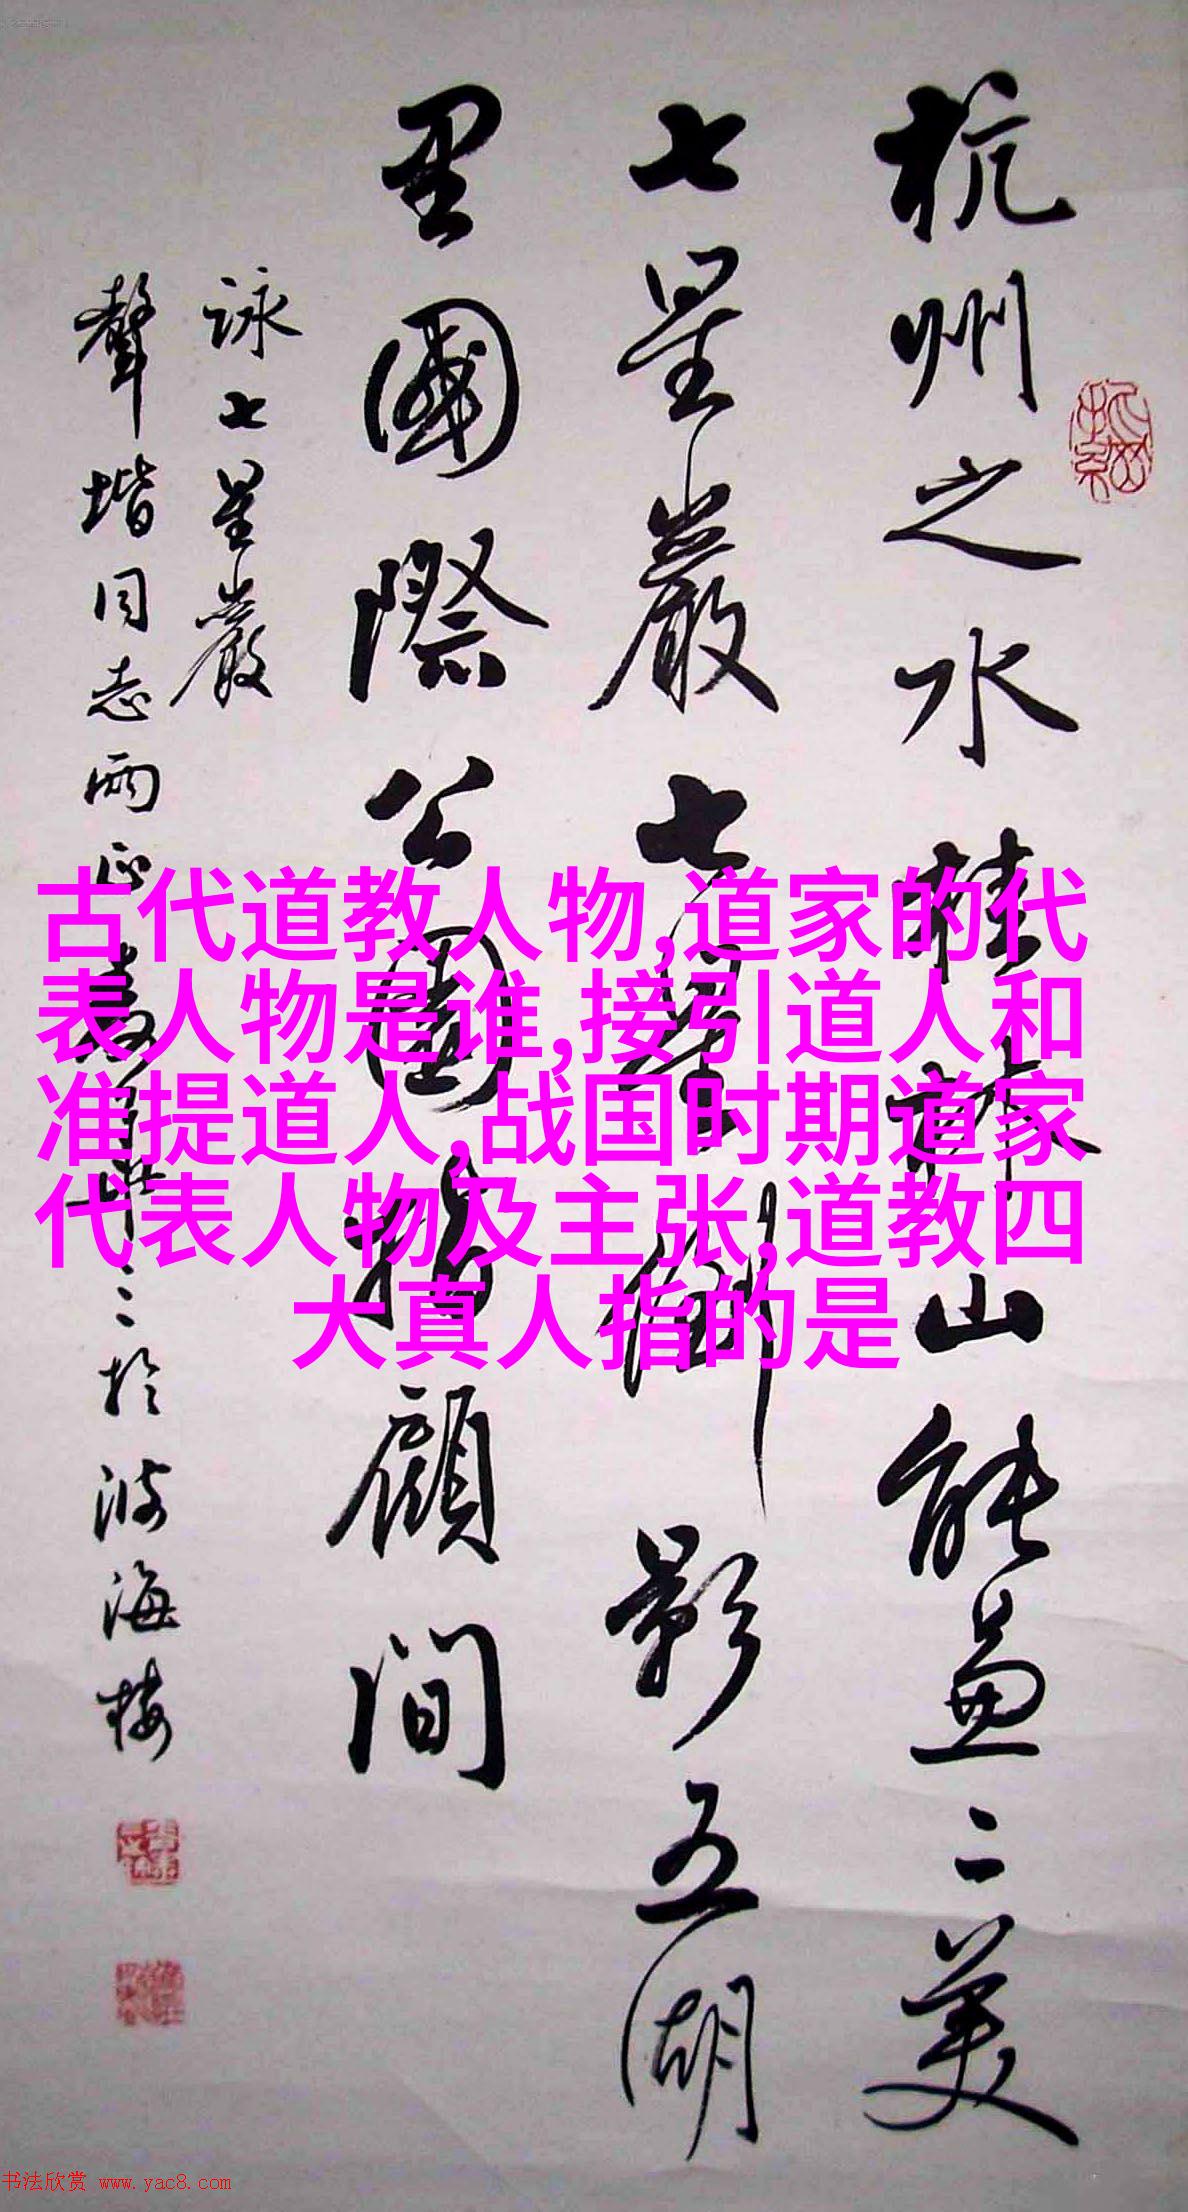 杭州之水桂林山能兼二美
七星巖七星御影五湖
里園際公園指顧間
詠七星巖
聲堦同志两正
於波海樓
古代道教人物,道家的代
表人物是谁,接引道人和
准提道人,战国时期道家
代表人物及主张,道教四
大真人指的是
书法欣赏 www.yac8.com